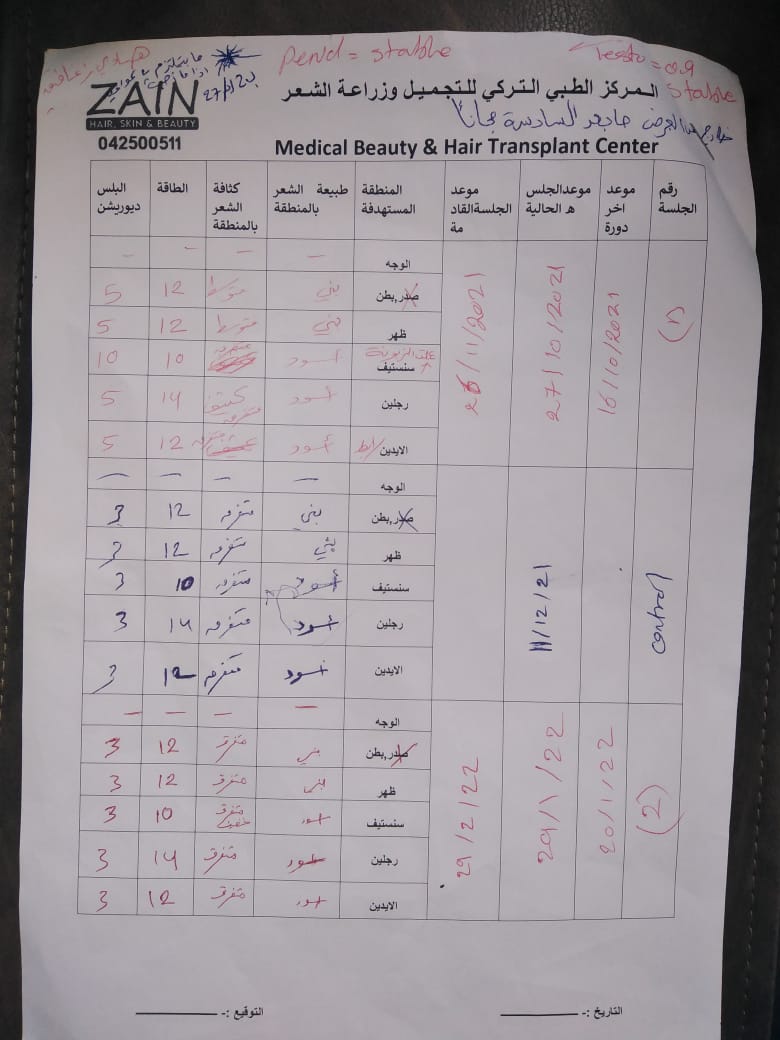 period = stable
testo = 0.9
stable
27/3/22
ZAIN
HAIR, SKIN & BEAUTY
042500511
المركز الطبي التركي للتجميل وزراعة الشعر
السادسة مجاناً
Medical Beauty & Hair Transplant Center
رقم الجلسة | موعد اخر دورة | موعدالجلسه الحالية | موعد الجلسةالقادمة | المنطقة المستهدفة | طبيعة الشعر بالمنطقة | كثافة الشعر بالمنطقة | الطاقة | البلس ديوريشن
(1) | 16/10/2021 | 27/10/2021 | 26/11/2021
الوجه | - | - | - | -
صدر,بطن | بني | متوسط | 12 | 5
ظهر | بني | متوسط | 12 | 5
سنستيف | أسود | متفرقه | 10 | 10
رجلين | أسود | كثيف متفرقه | 14 | 5
الايدين ابط | أسود | 12 | 5
control | 11/12/21
الوجه | - | - | - | -
صدر,بطن | بني | متفرقه | 12 | 3
ظهر | بني | متفرقه | 12 | 3
سنستيف | أسود | متفرقه | 10 | 3
رجلين | أسود | متفرقه | 14 | 3
الايدين | أسود | متفرقه | 12 | 3
(2) | 20/1/22 | 29/1/22 | 29/2/22
الوجه | - | - | - | -
صدر,بطن | بني | متفرق | 12 | 3
ظهر | بني | متفرق | 12 | 3
سنستيف | أسود | متفرق خفيف | 10 | 3
رجلين | أسود | متفرق | 14 | 3
الايدين | أسود | متفرق | 12 | 3
التاريخ :- | التوقيع :-